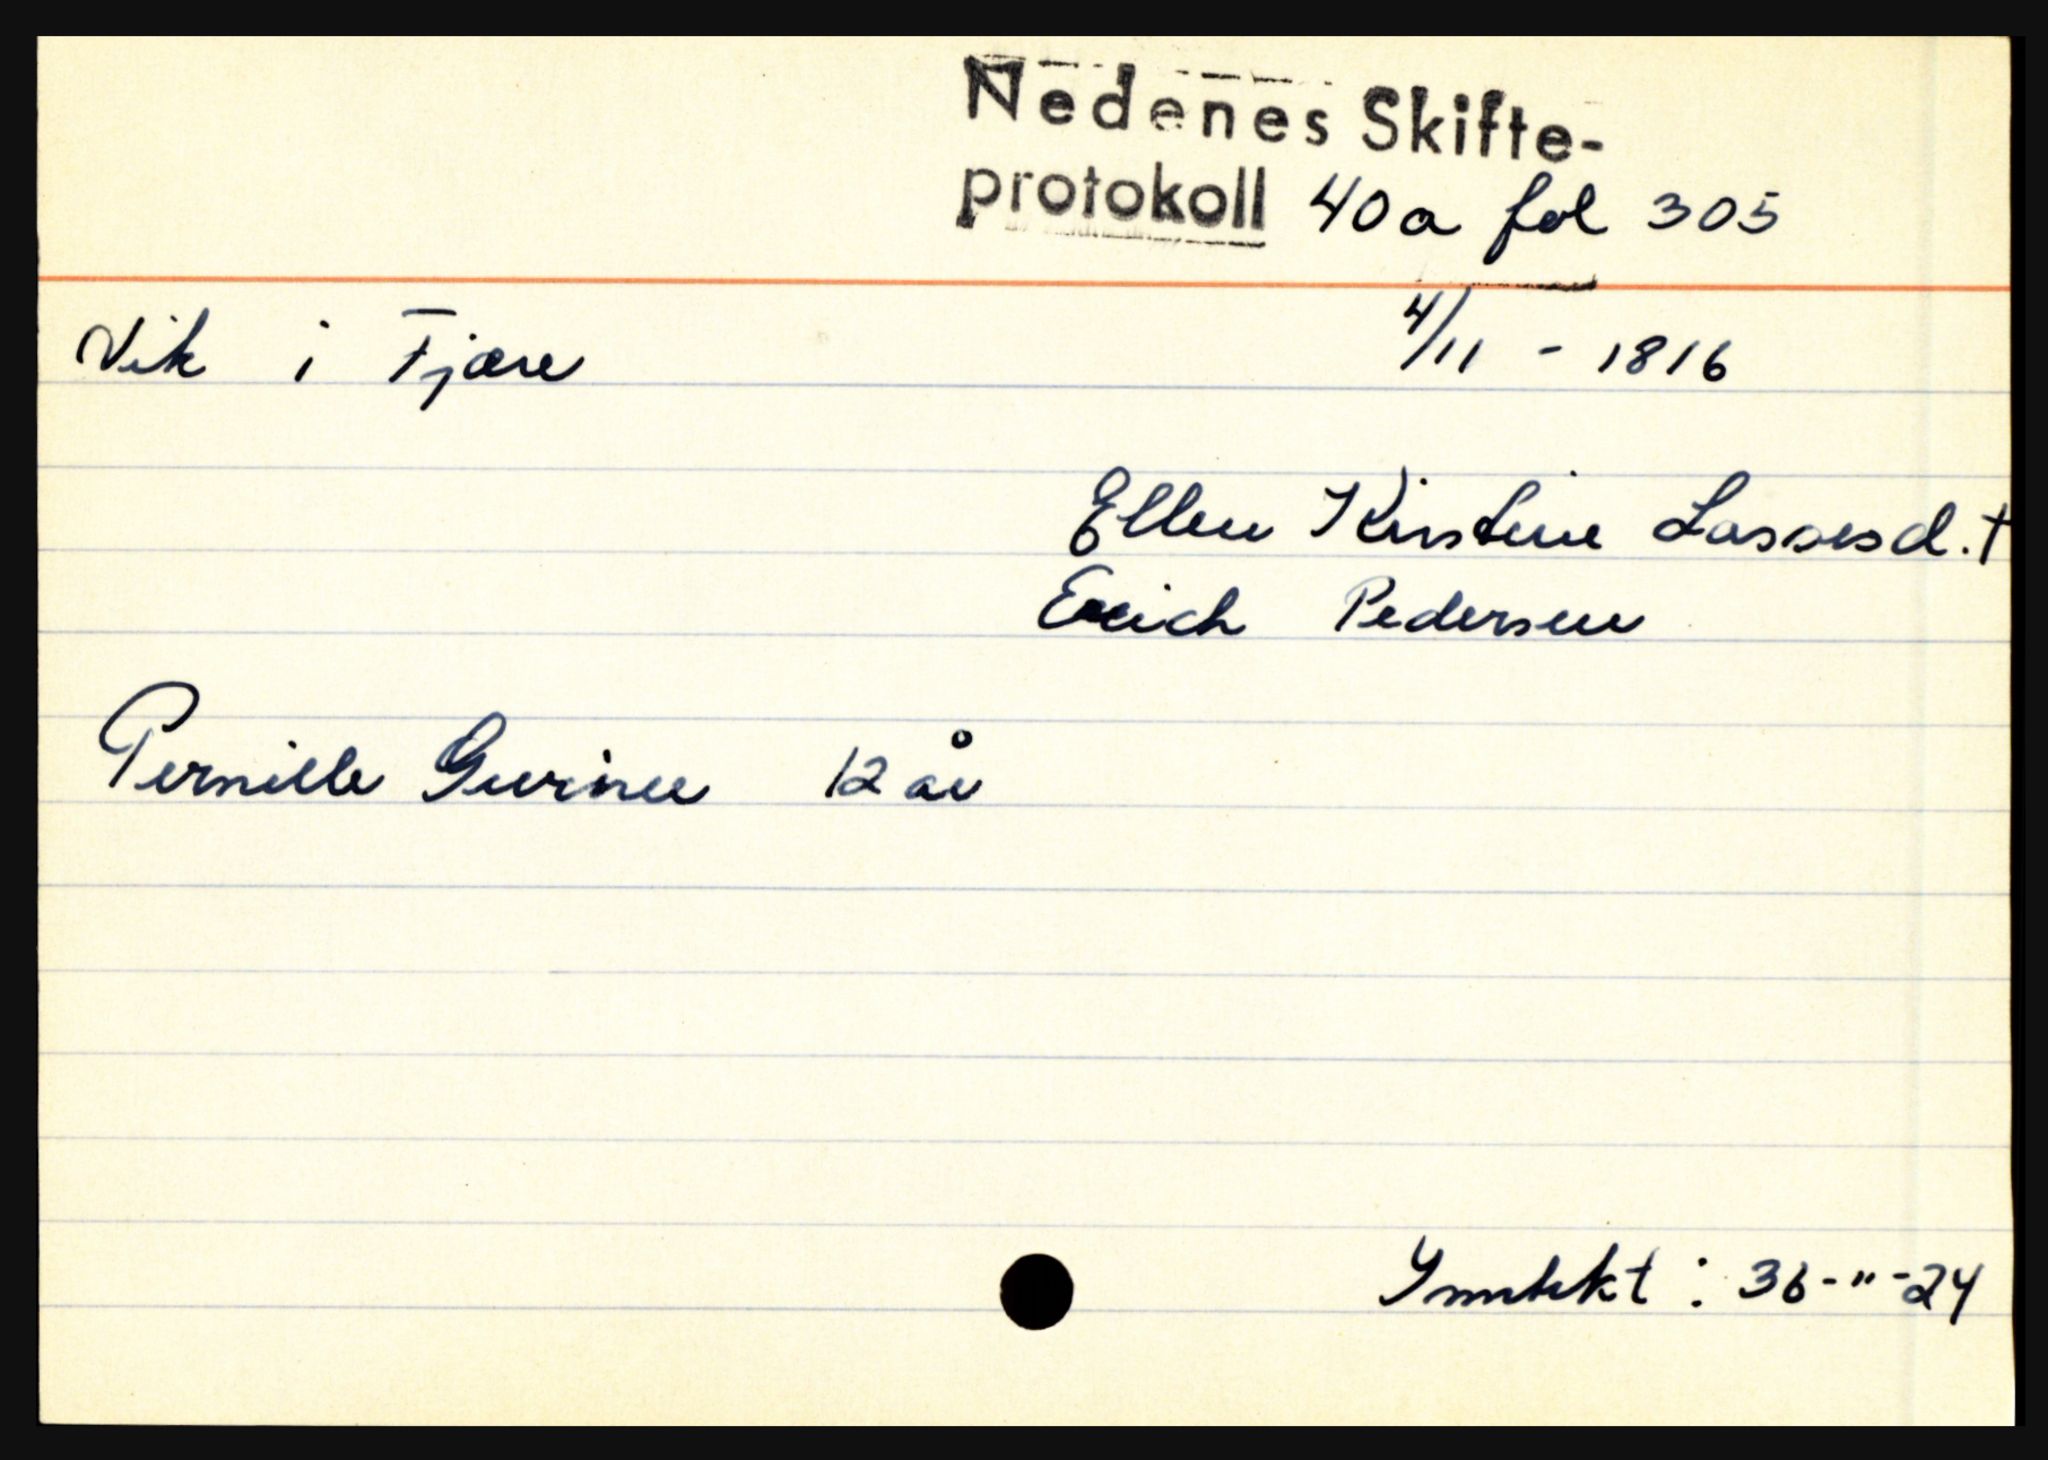 Nedenes Skifte-
protokoll 40a fol 305
Vik i Fjære 4/11 - 1816
Ellen Kirstine Lassesd. †
Erich Pedersen
Pernille Gurine 12 år
Inntekt : 36-"-24